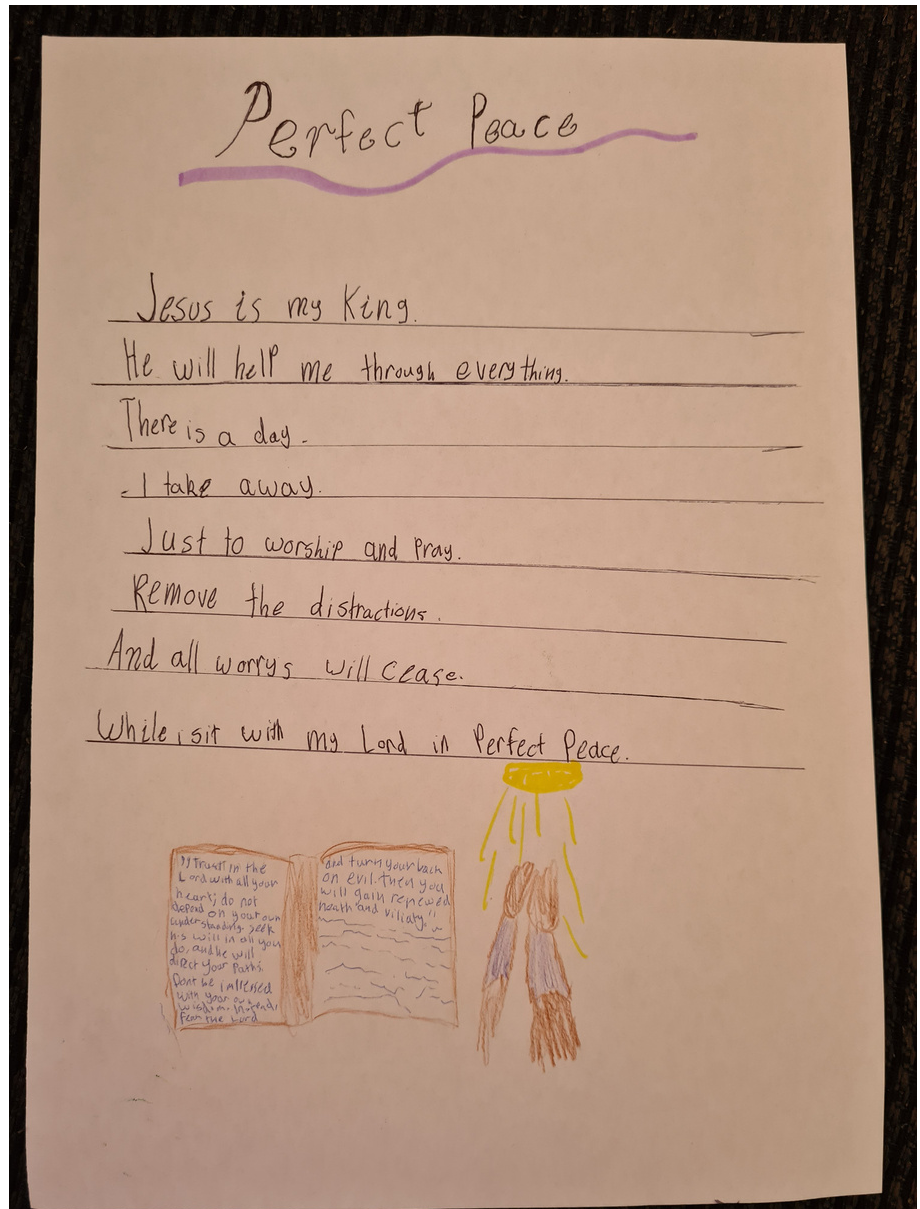 Perfect Peace
Jesus is my King.
He will help me through everything.
There is a day.
I take away.
Just to worship and Pray.
Remove the distractions.
And all worrys will cease.
While i sit with my Lord in Perfect Peace.
"Trust in the
Lord with all your
heart; do not
depend on your own
understanding. seek
his will in all you
do, and he will
direct your Paths.
Dont be imPressed
with your own
wisdom. Instead,
fear the Lord
and turn your back
on evil. then you
will gain renewed
heath and viliaty."